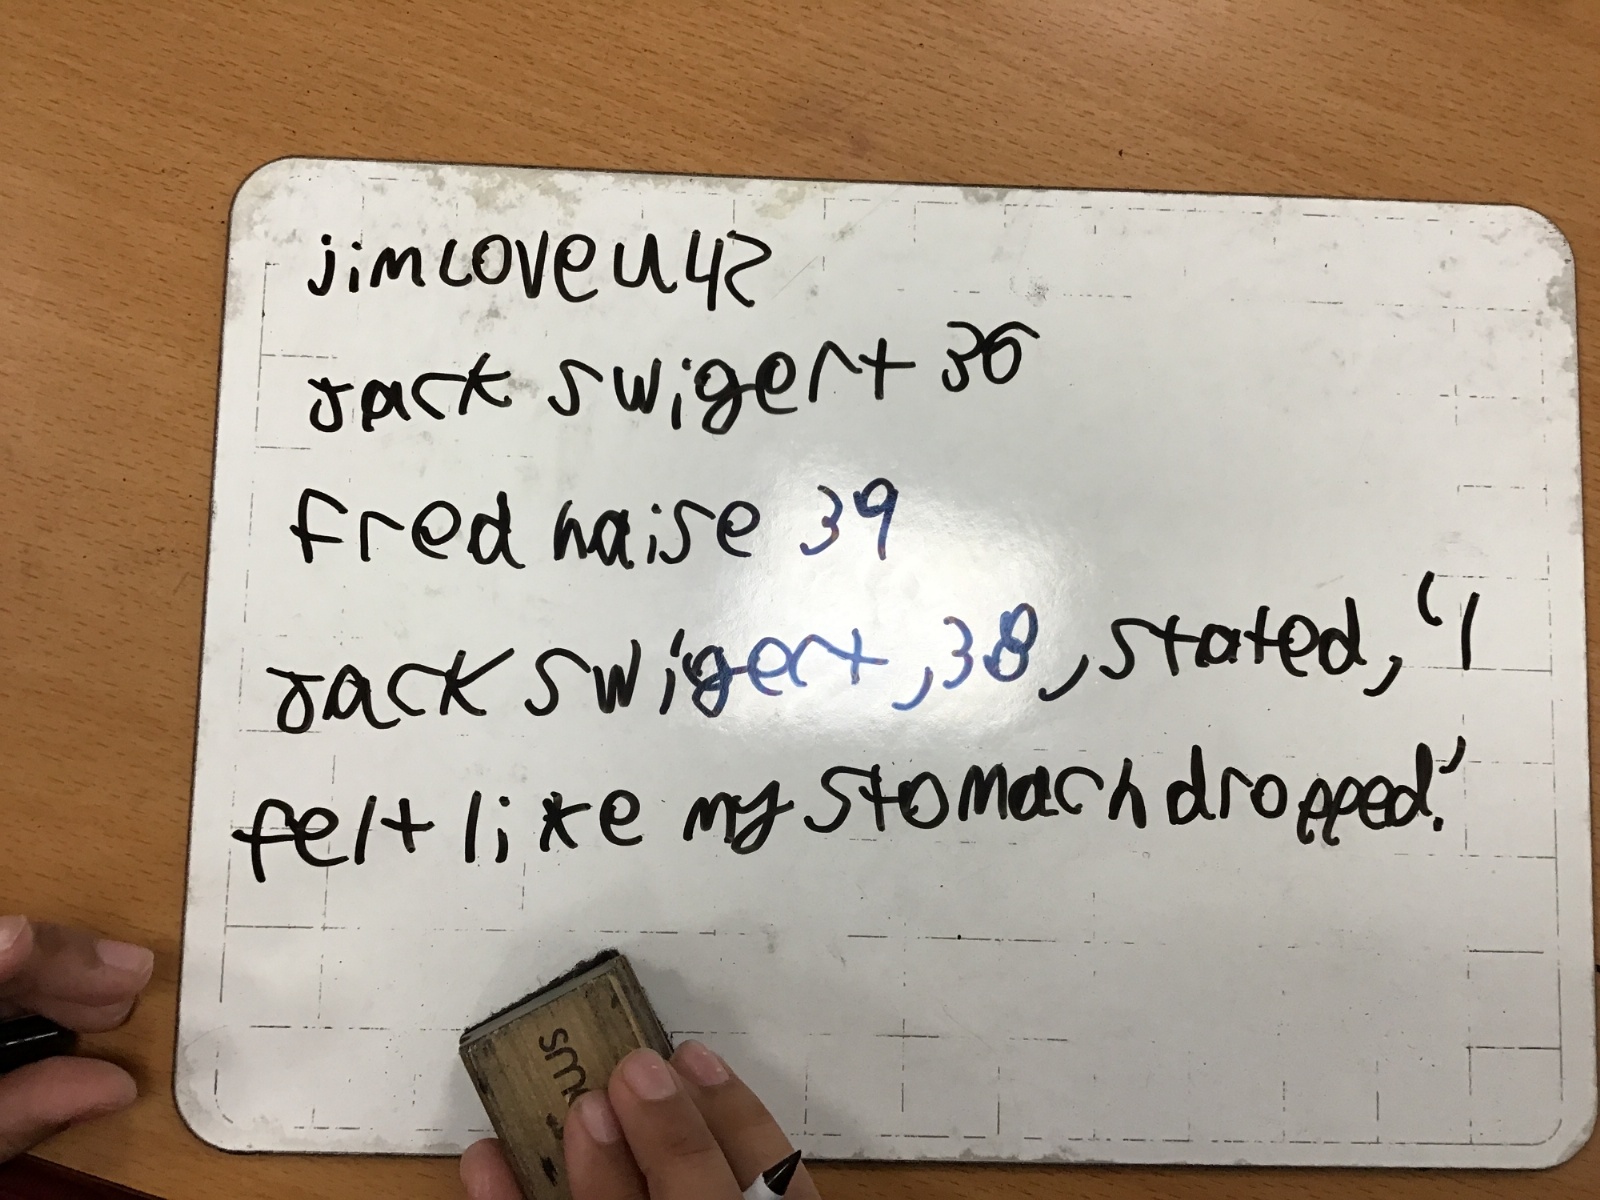 jim Loveu 42
Jack Swigert 36
fred haise 39
Jack Swigert, 38, stated, 'I
felt like my stomach dropped.'